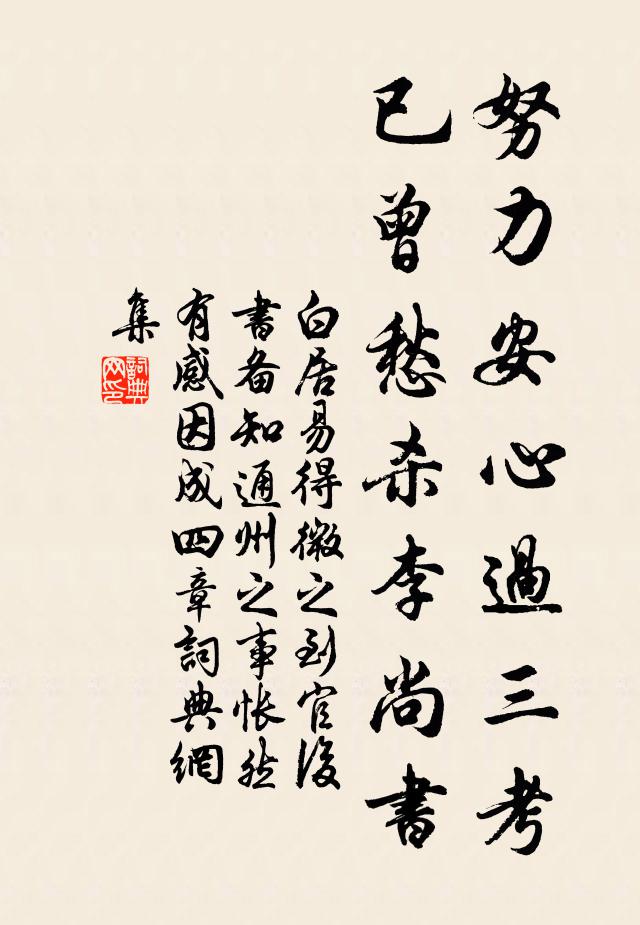 努力安心過三考
已曾愁杀李尚書
白居易得微之到官後
書备知通州之事怅然
有感因成四章詞典網
集
詞典
网印